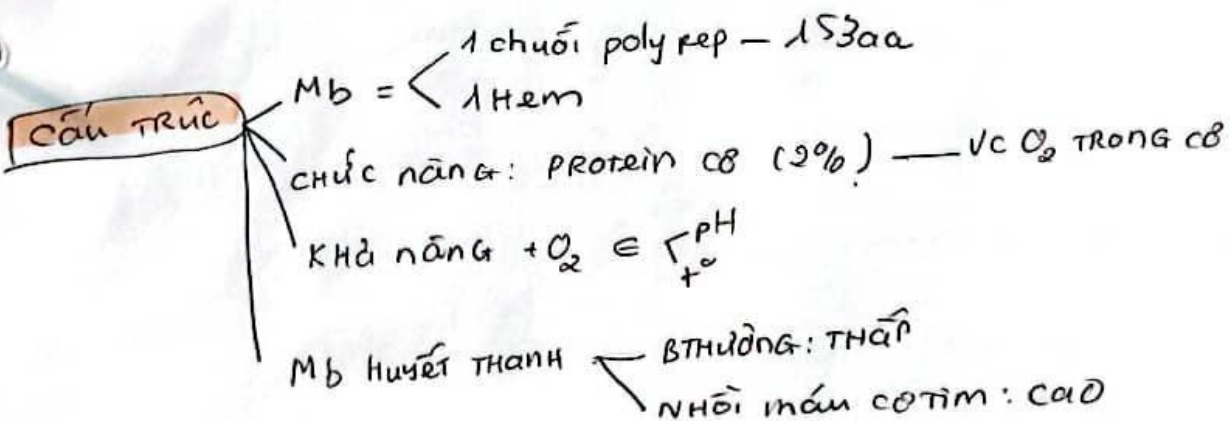 CẤU TRÚC
Mb =
1 chuỗi poly pep – 153aa
1 Hem
CHỨC NĂNG: PROTEIN CƠ (2%) — VC O₂ TRONG CƠ
KHẢ NĂNG + O₂ ∈
pH
t°
Mb HUYẾT THANH
BTHƯỜNG: THẤP
NHỒI MÁU CƠ TIM: CAO